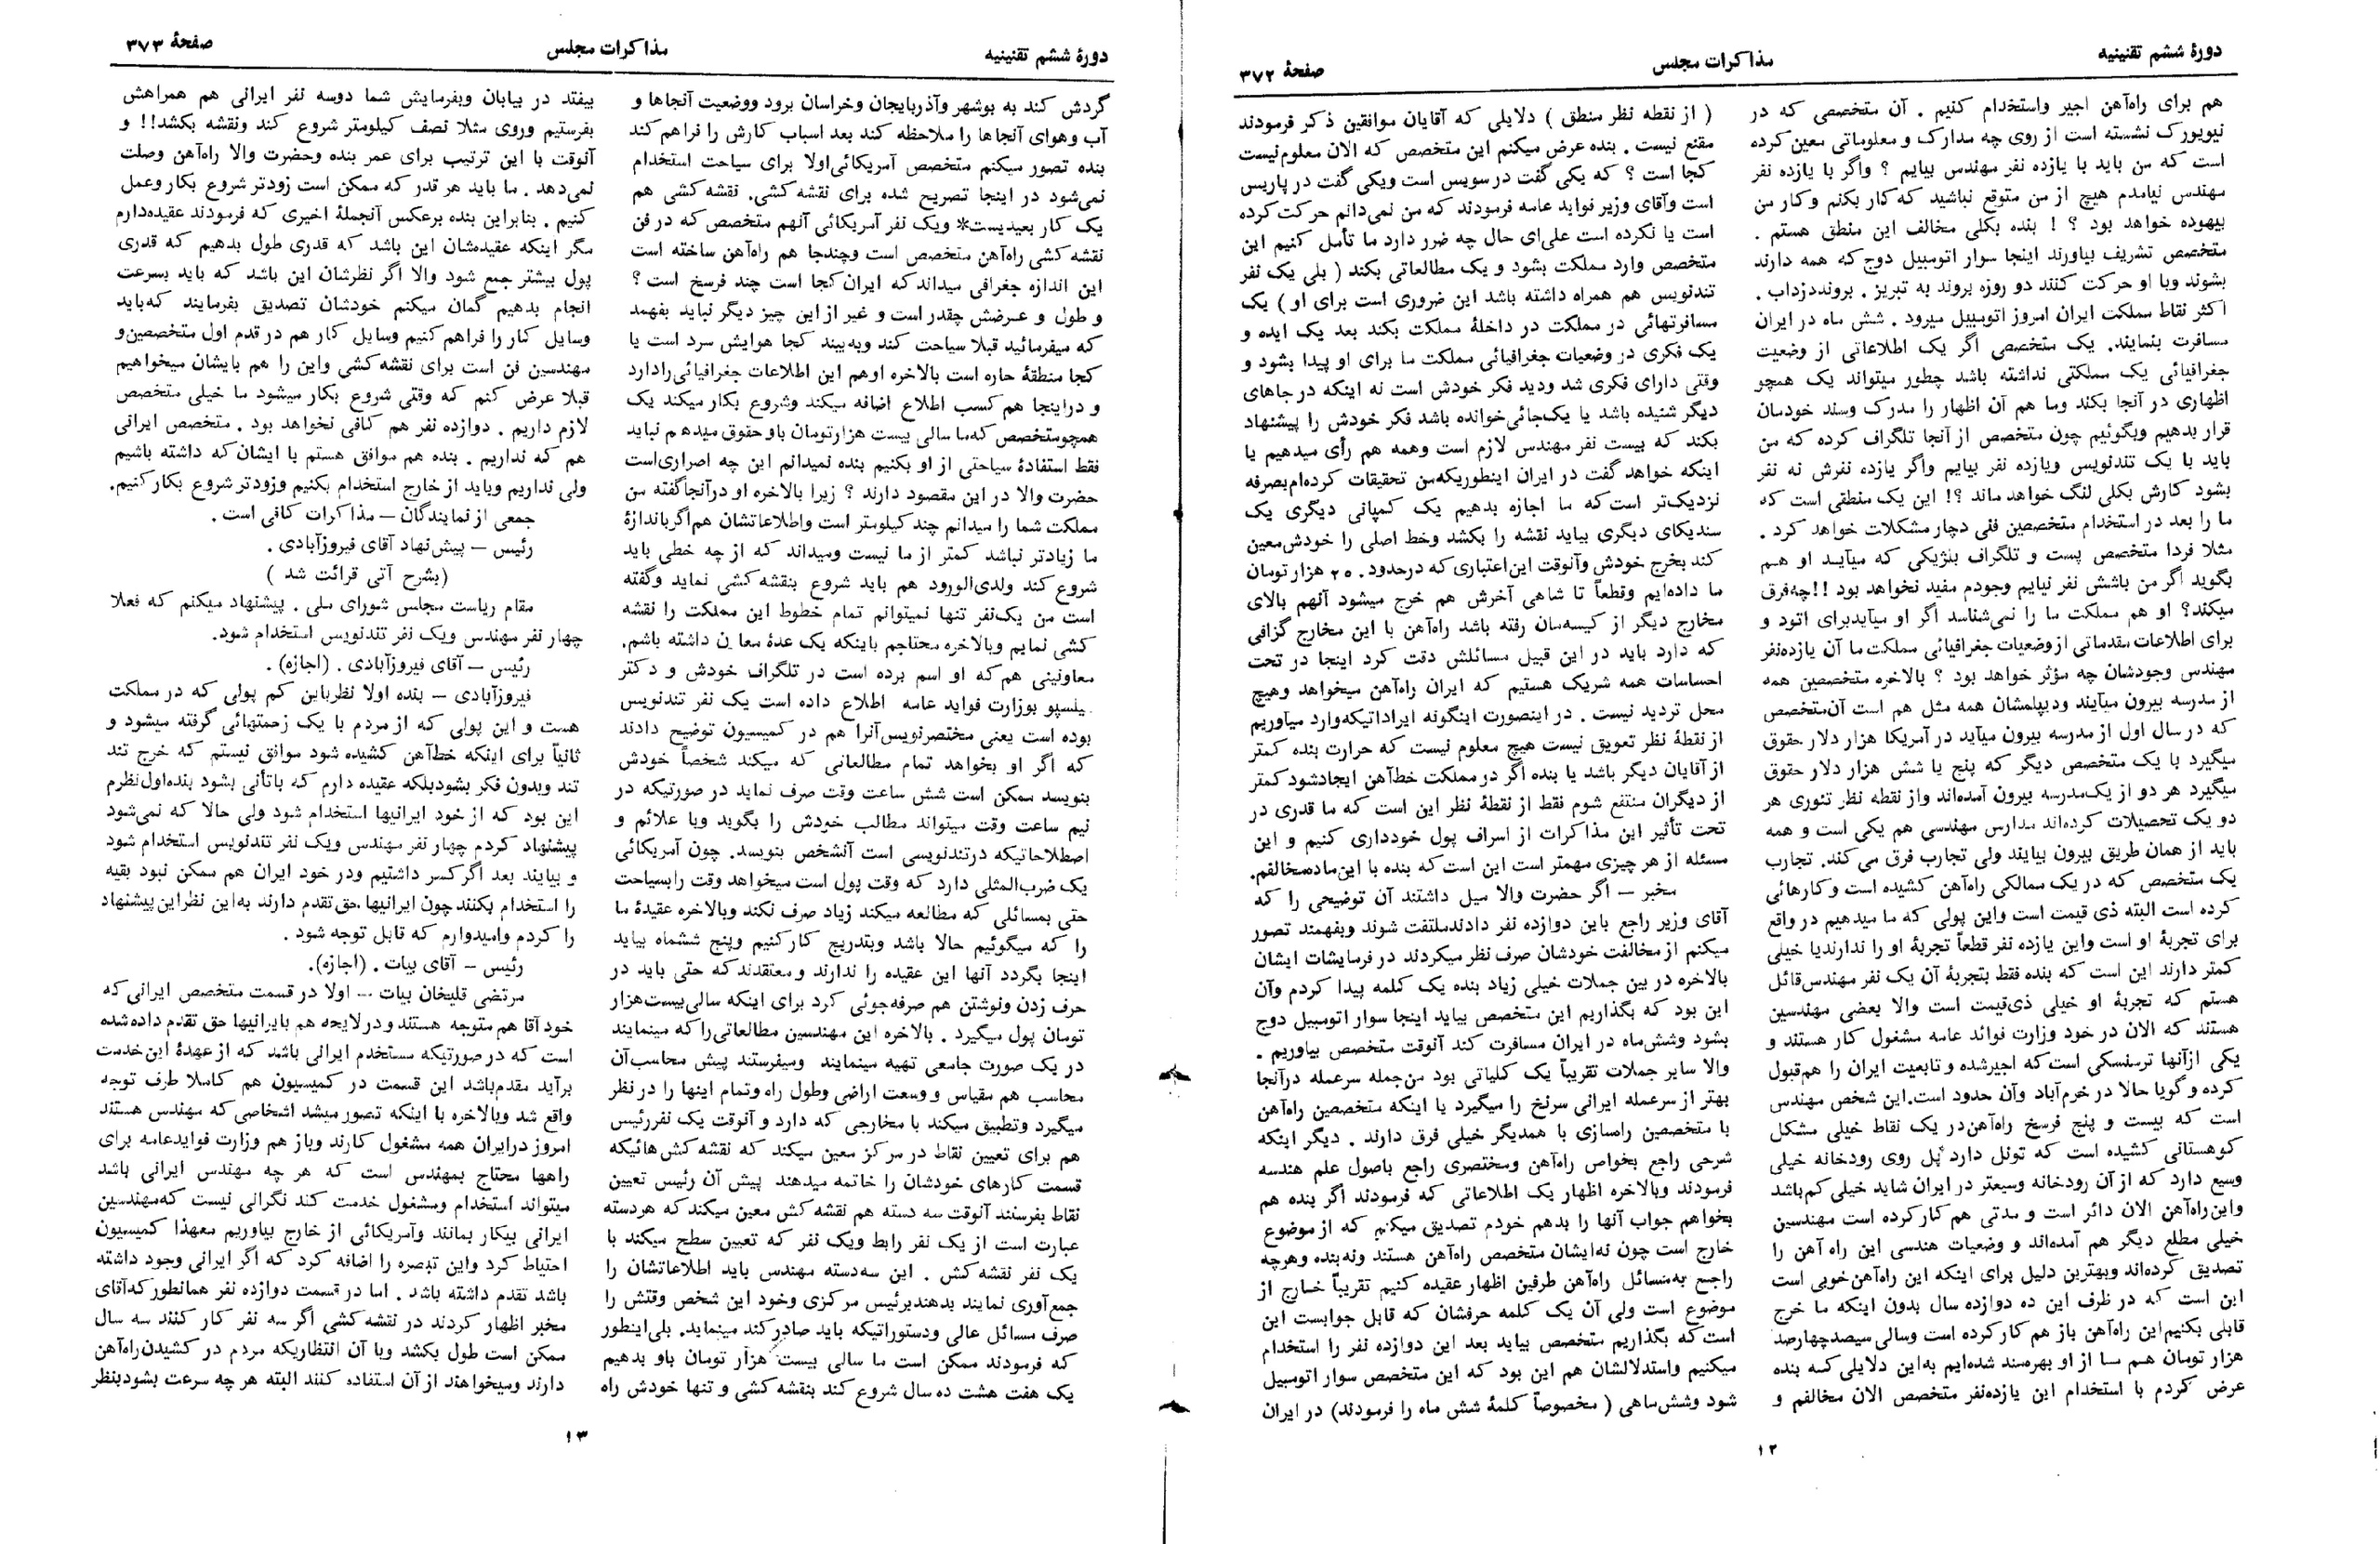 دورهٔ ششم تقنینیه
مذاکرات مجلس
صفحهٔ ۳۷۲
هم برای راه‌آهن اجیر واستخدام کنیم . آن متخصصی که در
نیویورک نشسته است از روی چه مدارک و معلوماتی معین کرده
است که من باید با یازده نفر مهندس بیایم ؟ واگر با یازده نفر
مهندس نیامدم هیچ از من متوقع نباشید که کار بکنم وکار من
بیهوده خواهد بود ؟ ! بنده بکلی مخالف این منطق هستم .
متخصص تشریف بیاورند اینجا سوار اتومبیل دوج که همه دارند
بشوند وبا او حرکت کنند دو روزه بروند به تبریز . بروند دزداب .
اکثر نقاط مملکت ایران امروز اتومبیل میرود . شش ماه در ایران
مسافرت بنمایند. یک متخصصی اگر یک اطلاعاتی از وضعیت
جغرافیائی یک مملکتی نداشته باشد چطور میتواند یک همچو
اظهاری در آنجا بکند وما هم آن اظهار را مدرک وسند خودمان
قرار بدهیم وبگوئیم چون متخصص از آنجا تلگراف کرده که من
باید با یک تندنویس ویازده نفر بیایم واگر یازده نفرش نه نفر
بشود کارش بکلی لنگ خواهد ماند ؟! این یک منطقی است که
ما را بعد در استخدام متخصصین فنی دچار مشکلات خواهد کرد .
مثلا فردا متخصص پست و تلگراف بلژیکی که میآید او هم
بگوید اگر من باشش نفر نیایم وجودم مفید نخواهد بود !!چه‌فرق
میکند؟ او هم مملکت ما را نمی‌شناسد اگر او میآیدبرای اتود و
برای اطلاعات مقدماتی ازوضعیات جغرافیائی مملکت ما آن یازده‌نفر
مهندس وجودشان چه مؤثر خواهد بود ؟ بالاخره متخصصین همه
از مدرسه بیرون میآیند ودیپلمشان همه مثل هم است آن‌متخصص
که در سال اول از مدرسه بیرون میآید در آمریکا هزار دلار حقوق
میگیرد با یک متخصص دیگر که پنج یا شش هزار دلار حقوق
میگیرد هر دو از یک‌مدرسه بیرون آمده‌اند واز نقطه نظر تئوری هر
دو یک تحصیلات کرده‌اند مدارس مهندسی هم یکی است و همه
باید از همان طریق بیرون بیایند ولی تجارب فرق می کند. تجارب
یک متخصص که در یک ممالکی راه‌آهن کشیده است وکارهائی
کرده است البته ذی قیمت است واین پولی که ما میدهیم در واقع
برای تجربهٔ او است واین یازده نفر قطعاً تجربهٔ او را ندارندیا خیلی
کمتر دارند این است که بنده فقط بتجربهٔ آن یک نفر مهندس‌قائل
هستم که تجربهٔ او خیلی ذی‌قیمت است والا بعضی مهندسین
هستند که الان در خود وزارت فوائد عامه مشغول کار هستند و
یکی ازآنها ترسنسکی است‌که اجیرشده و تابعیت ایران را هم‌قبول
کرده و گویا حالا در خرم‌آباد وآن حدود است.این شخص مهندس
است که بیست و پنج فرسخ راه‌آهن‌در یک نقاط خیلی مشکل
کوهستانی کشیده است که تونل دارد پل روی رودخانه خیلی
وسیع دارد که از آن رودخانه وسیعتر در ایران شاید خیلی کم‌باشد
واین‌راه‌آهن الان دائر است و مدتی هم کارکرده است مهندسین
خیلی مطلع دیگر هم آمده‌اند و وضعیات هندسی این راه آهن را
تصدیق کرده‌اند وبهترین دلیل برای اینکه این راه‌آهن‌خوبی است
این است که در ظرف این ده دوازده سال بدون اینکه ما خرج
قابلی بکنیم‌این راه‌آهن باز هم کارکرده است وسالی سیصدچهارصد
هزار تومان هم ما از او بهره‌مند شده‌ایم به‌این دلایلی‌که بنده
عرض کردم با استخدام این یازده‌نفر متخصص الان مخالفم و
( از نقطه نظر منطق ) دلایلی که آقایان موافقین ذکر فرمودند
مقنع نیست . بنده عرض میکنم این متخصص که الان معلوم‌نیست
کجا است ؟ که یکی گفت در سویس است ویکی گفت در پاریس
است وآقای وزیر فواید عامه فرمودند که من نمی‌دانم حرکت کرده
است یا نکرده است علی‌ای حال چه ضرر دارد ما تأمل کنیم این
متخصص وارد مملکت بشود و یک مطالعاتی بکند ( بلی یک نفر
تندنویس هم همراه داشته باشد این ضروری است برای او ) یک
مسافرتهائی در مملکت در داخلهٔ مملکت بکند بعد یک ایده و
یک فکری در وضعیات جغرافیائی مملکت ما برای او پیدا بشود و
وقتی دارای فکری شد ودید فکر خودش است نه اینکه در جاهای
دیگر شنیده باشد یا یک‌جائی خوانده باشد فکر خودش را پیشنهاد
بکند که بیست نفر مهندس لازم است وهمه هم رأی میدهیم یا
اینکه خواهد گفت در ایران اینطوریکه‌من تحقیقات کرده‌ام‌بصرفه
نزدیک‌تر است‌که ما اجازه بدهیم یک کمپانی دیگری یک
سندیکای دیگری بیاید نقشه را بکشد وخط اصلی را خودش‌معین
کند بخرج خودش وآنوقت این‌اعتباری که درحدود. ۲۵ هزار تومان
ما داده‌ایم وقطعاً تا شاهی آخرش هم خرج میشود آنهم بالای
مخارج دیگر از کیسه‌مان رفته باشد راه‌آهن با این مخارج گزافی
که دارد باید در این قبیل مسائلش دقت کرد اینجا در تحت
احساسات همه شریک هستیم که ایران راه‌آهن میخواهد وهیچ
محل تردید نیست . در اینصورت اینگونه ایراداتیکه‌وارد میآوریم
از نقطهٔ نظر تعویق نیست هیچ معلوم نیست که حرارت بنده کمتر
از آقایان دیگر باشد یا بنده اگر در مملکت خط‌آهن ایجادشود کمتر
از دیگران منتفع شوم فقط از نقطهٔ نظر این است که ما قدری در
تحت تأثیر این مذاکرات از اسراف پول خودداری کنیم و این
مسئله از هر چیزی مهمتر است این است‌که بنده با این‌ماده‌مخالفم.
مخبر — اگر حضرت والا میل داشتند آن توضیحی را که
آقای وزیر راجع باین دوازده نفر دادندملتفت شوند وبفهمند تصور
میکنم از مخالفت خودشان صرف نظر میکردند در فرمایشات ایشان
بالاخره در بین جملات خیلی زیاد بنده یک کلمه پیدا کردم وآن
این بود که بگذاریم این متخصص بیاید اینجا سوار اتومبیل دوج
بشود وشش‌ماه در ایران مسافرت کند آنوقت متخصص بیاوریم .
والا سایر جملات تقریباً یک کلیاتی بود من‌جمله سرعمله درآنجا
بهتر از سرعمله ایرانی سرنخ را میگیرد یا اینکه متخصصین راه‌آهن
با متخصصین راه‌سازی با همدیگر خیلی فرق دارند . دیگر اینکه
شرحی راجع بخواص راه‌آهن ومختصری راجع باصول علم هندسه
فرمودند وبالاخره اظهار یک اطلاعاتی که فرمودند اگر بنده هم
بخواهم جواب آنها را بدهم خودم تصدیق میکنم که از موضوع
خارج است چون نه‌ایشان متخصص راه‌آهن هستند ونه‌بنده وهرچه
راجع به‌مسائل راه‌آهن طرفین اظهار عقیده کنیم تقریباً خارج از
موضوع است ولی آن یک کلمه حرفشان که قابل جوابست این
است‌که بگذاریم متخصص بیاید بعد این دوازده نفر را استخدام
میکنیم واستدلالشان هم این بود که این متخصص سوار اتومبیل
شود وشش‌ماهی ( مخصوصاً کلمهٔ شش ماه را فرمودند) در ایران
۱۲
دورهٔ ششم تقنینیه
مذاکرات مجلس
صفحهٔ ۳۷۳
گردش کند به بوشهر وآذربایجان وخراسان برود ووضعیت آنجاها و
آب وهوای آنجاها را ملاحظه کند بعد اسباب کارش را فراهم کند
بنده تصور میکنم متخصص آمریکائی‌اولا برای سیاحت استخدام
نمی‌شود در اینجا تصریح شده برای نقشه‌کشی. نقشه کشی هم
یک کار بعیدیست* ویک نفر آمریکائی آنهم متخصص که در فن
نقشه کشی راه‌آهن متخصص است وچندجا هم راه‌آهن ساخته است
این اندازه جغرافی میداند که ایران کجا است چند فرسخ است ؟
و طول و عرضش چقدر است و غیر از این چیز دیگر نباید بفهمد
که میفرمائید قبلا سیاحت کند وبه‌بیند کجا هوایش سرد است یا
کجا منطقهٔ حاره است بالاخره اوهم این اطلاعات جغرافیائی‌را‌دارد
و دراینجا هم کسب اطلاع اضافه میکند وشروع بکار میکند یک
همچومتخصص که‌ما سالی بیست هزارتومان باوحقوق میدهم نباید
فقط استفادهٔ سیاحتی از او بکنیم بنده نمیدانم این چه اصراری‌است
حضرت والا در این مقصود دارند ؟ زیرا بالاخره او درآنجاگفته من
مملکت شما را میدانم چند کیلومتر است واطلاعاتشان هم‌اگرباندازهٔ
ما زیادتر نباشد کمتر از ما نیست ومیداند که از چه خطی باید
شروع کند ولدی‌الورود هم باید شروع بنقشه‌کشی نماید وگفته
است من یک‌نفر تنها نمیتوانم تمام خطوط این مملکت را نقشه
کشی نمایم وبالاخره محتاجم باینکه یک عدهٔ معاون داشته باشم.
معاونینی هم‌که او اسم برده است در تلگراف خودش و دکتر
میلسپو بوزارت فواید عامه اطلاع داده است یک نفر تندنویس
بوده است یعنی مختصرنویس‌آنرا هم در کمیسیون توضیح دادند
که اگر او بخواهد تمام مطالعاتی که میکند شخصاً خودش
بنویسد ممکن است شش ساعت وقت صرف نماید در صورتیکه در
نیم ساعت وقت میتواند مطالب خودش را بگوید وبا علائم و
اصطلاحاتیکه درتندنویسی است آنشخص بنویسد. چون آمریکائی
یک ضرب‌المثلی دارد که وقت پول است میخواهد وقت رابسیاحت
حتی بمسائلی که مطالعه میکند زیاد صرف نکند وبالاخره عقیدهٔ ما
را که میگوئیم حالا باشد وبتدریج کارکنیم وپنج ششماه بیاید
اینجا بگردد آنها این عقیده را ندارند و معتقدندکه حتی باید در
حرف زدن ونوشتن هم صرفه‌جوئی کرد برای اینکه سالی‌بیست‌هزار
تومان پول میگیرد . بالاخره این مهندسین مطالعاتی‌را که مینمایند
در یک صورت جامعی تهیه مینمایند ومیفرستند پیش محاسب‌آن
محاسب هم مقیاس و وسعت اراضی وطول راه وتمام اینها را در نظر
میگیرد وتطبیق میکند با مخارجی که دارد و آنوقت یک نفررئیس
هم برای تعیین نقاط در مرکز معین میکند که نقشه کش هائیکه
قسمت کارهای خودشان را خاتمه میدهند پیش آن رئیس تعیین
نقاط بفرستند آنوقت سه دسته هم نقشه کش معین میکند که هردسته
عبارت است از یک نفر رابط ویک نفر که تعیین سطح میکند با
یک نفر نقشه‌کش . این سه‌دسته مهندس باید اطلاعاتشان را
جمع‌آوری نمایند بدهندبرئیس مرکزی وخود این شخص وقتش را
صرف مسائل عالی ودستوراتیکه باید صادر کند مینماید. بلی‌اینطور
که فرمودند ممکن است ما سالی بیست هزار تومان باو بدهیم
یک هفت هشت ده سال شروع کند بنقشه کشی و تنها خودش راه
بیفتد در بیابان وبفرمایش شما دوسه نفر ایرانی هم همراهش
بفرستیم وروی مثلا نصف کیلومتر شروع کند ونقشه بکشد!! و
آنوقت با این ترتیب برای عمر بنده وحضرت والا راه‌آهن وصلت
نمی‌دهد . ما باید هر قدر که ممکن است زودتر شروع بکار وعمل
کنیم . بنابراین بنده برعکس آنجملهٔ اخیری که فرمودند عقیده‌دارم
مگر اینکه عقیده‌شان این باشد که قدری طول بدهیم که قدری
پول بیشتر جمع شود والا اگر نظرشان این باشد که باید بسرعت
انجام بدهیم گمان میکنم خودشان تصدیق بفرمایند که‌باید
وسایل کار را فراهم کنیم وسایل کار هم در قدم اول متخصصین‌و
مهندسین فن است برای نقشه‌کشی واین را هم بایشان میخواهیم
قبلا عرض کنم که وقتی شروع بکار میشود ما خیلی متخصص
لازم داریم . دوازده نفر هم کافی نخواهد بود . متخصص ایرانی
هم که نداریم . بنده هم موافق هستم با ایشان‌که داشته باشیم
ولی نداریم وباید از خارج استخدام بکنیم وزودتر شروع بکارکنیم.
جمعی از نمایندگان — مذاکرات کافی است .
رئیس — پیش‌نهاد آقای فیروزآبادی .
(بشرح آتی قرائت شد )
مقام ریاست مجلس شورای ملی . پیشنهاد میکنم که فعلا
چهار نفر مهندس ویک نفر تندنویس استخدام شود.
رئیس — آقای فیروزآبادی . (اجازه) .
فیروزآبادی — بنده اولا نظرباین کم پولی که در مملکت
هست و این پولی که از مردم با یک زحمتهائی گرفته میشود و
ثانیاً برای اینکه خط‌آهن کشیده شود موافق نیستم که خرج تند
تند وبدون فکر بشودبلکه عقیده دارم که باتأنی بشود بنده‌اول‌نظرم
این بود که از خود ایرانیها استخدام شود ولی حالا که نمی‌شود
پیشنهاد کردم چهار نفر مهندس ویک نفر تندنویس استخدام شود
و بیایند بعد اگر کسر داشتیم ودر خود ایران هم ممکن نبود بقیه
را استخدام بکنند چون ایرانیها حق‌تقدم دارند به‌این نظراین‌پیشنهاد
را کردم وامیدوارم که قابل توجه شود .
رئیس — آقای بیات . (اجازه).
مرتضی قلیخان بیات — اولا در قسمت متخصص ایرانی که
خود آقا هم متوجه هستند و در لایحه هم بایرانیها حق تقدم داده‌شده
است که در صورتیکه مستخدم ایرانی باشد که از عهدهٔ این‌خدمت
برآید مقدم‌باشد این قسمت در کمیسیون هم کاملا طرف توجه
واقع شد وبالاخره با اینکه تصور میشد اشخاصی که مهندس هستند
امروز درایران همه مشغول کارند وباز هم وزارت فوایدعامه برای
راهها محتاج بمهندس است که هر چه مهندس ایرانی باشد
میتواند استخدام ومشغول خدمت کند نگرانی نیست که‌مهندسین
ایرانی بیکار بمانند وآمریکائی از خارج بیاوریم معهذا کمیسیون
احتیاط کرد واین تبصره را اضافه کرد که اگر ایرانی وجود داشته
باشد تقدم داشته باشد . اما در قسمت دوازده نفر همانطورکه‌آقای
مخبر اظهار کردند در نقشه‌کشی اگر سه نفر کار کنند سه سال
ممکن است طول بکشد وبا آن انتظاریکه مردم در کشیدن‌راه‌آهن
دارند ومیخواهند از آن استفاده کنند البته هر چه سرعت بشودبنظر
۱۳